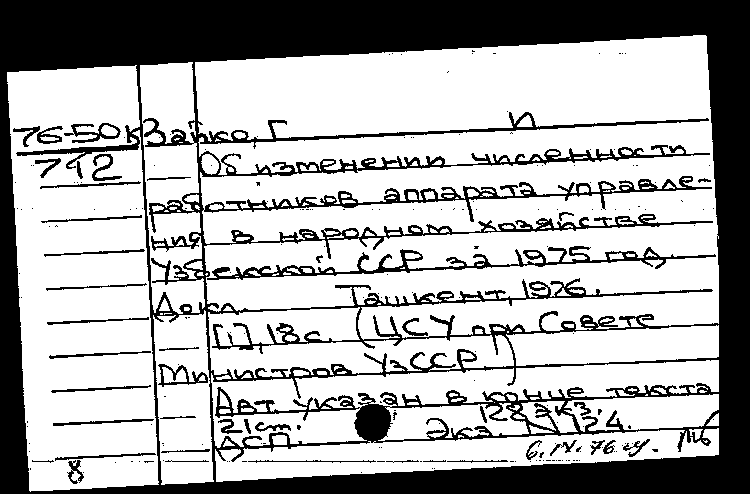 76-50к Зайко, Г И
742 Об изменении численности
работников аппарата управле-
ния в народном хозяйстве
Узбекской ССР за 1975 год.
Докл. Ташкент, 1976.
[1], 18 с. (ЦСУ при Совете
Министров УзССР)
Авт. указан в конце текста
21 ст. 128 экз.
ДСП. Экз. N 124.
6.IV.76
8